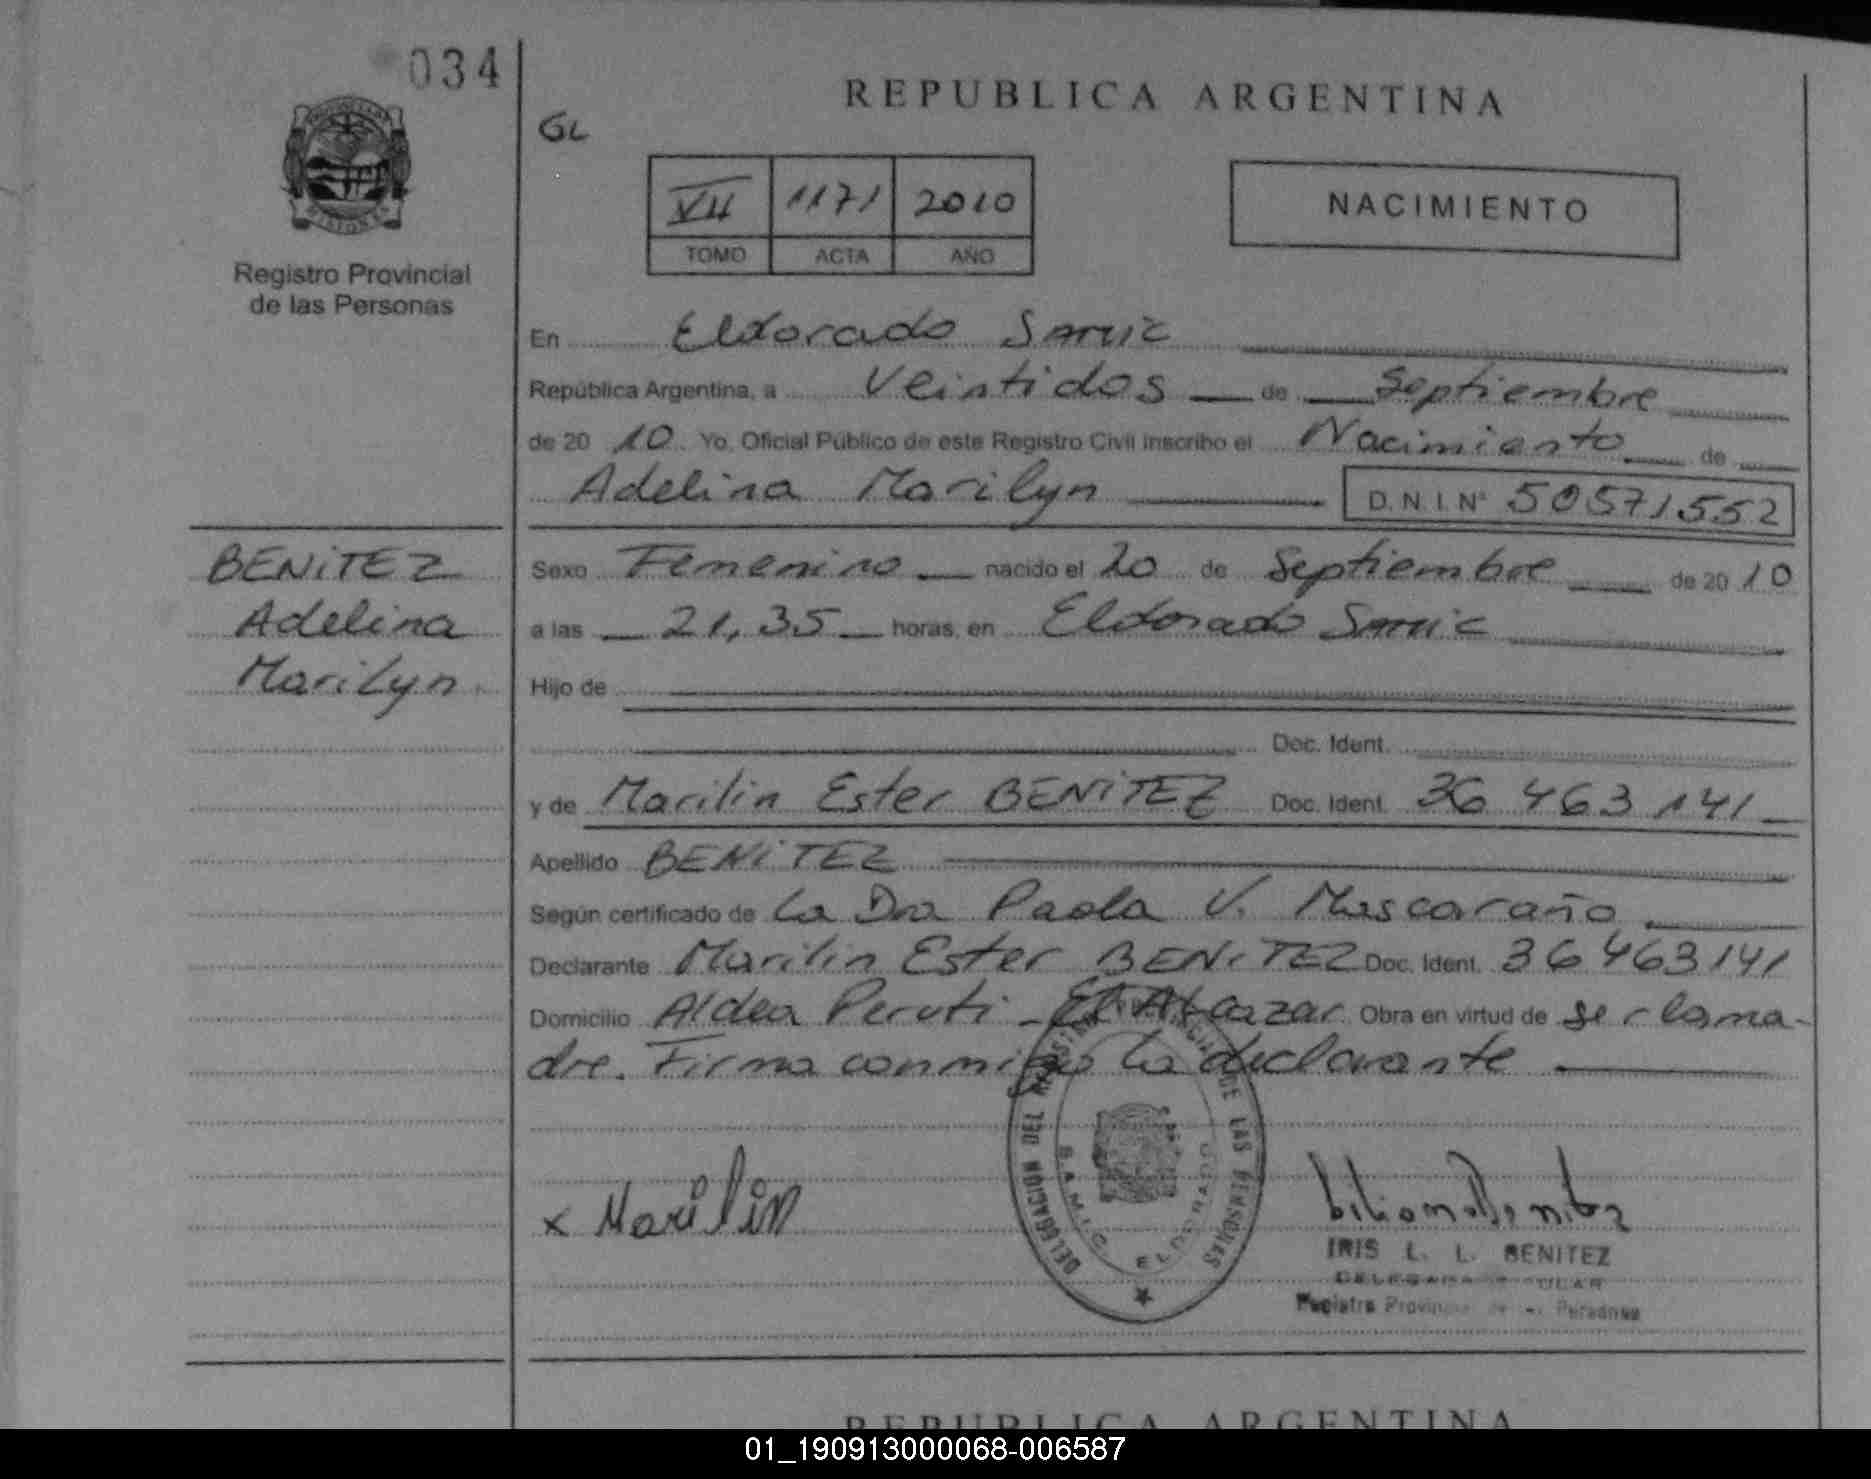 034
GL
REPUBLICA ARGENTINA
VII 1171 2010
TOMO ACTA AÑO
NACIMIENTO
Registro Provincial
de las Personas
En Eldorado Samic
República Argentina, a Veintidos de Septiembre
de 20 10 Yo, Oficial Público de este Registro Civil inscribo el Nacimiento de
Adelina Marilyn D.N.I.Nº 50571552
BENiTEZ
Adelina
Marilyn
Sexo Femenino nacido el 20 de Septiembre de 20 10
a las 21,35 horas, en Eldorado Samic
Hijo de
Doc. Ident.
y de Marilin Ester BENiTEZ Doc. Ident. 36 463 141
Apellido BENiTEZ
Según certificado de La Dra Paola V. Mascaraño
Declarante Marilin Ester BENiTEZ Doc. Ident. 36 463 141
Domicilio Aldea Peruti - El Alcazar Obra en virtud de ser la ma-
dre. Firma conmigo la declarante
DELEGACION DEL REGISTRO PROVINCIAL DE LAS PERSONAS
S.A.M.I.C. ELDORADO
x Marilin
IRIS L. L. BENITEZ
DELEGADA TITULAR
Registro Provincial de las Personas
REPUBLICA ARGENTINA
01_190913000068-006587